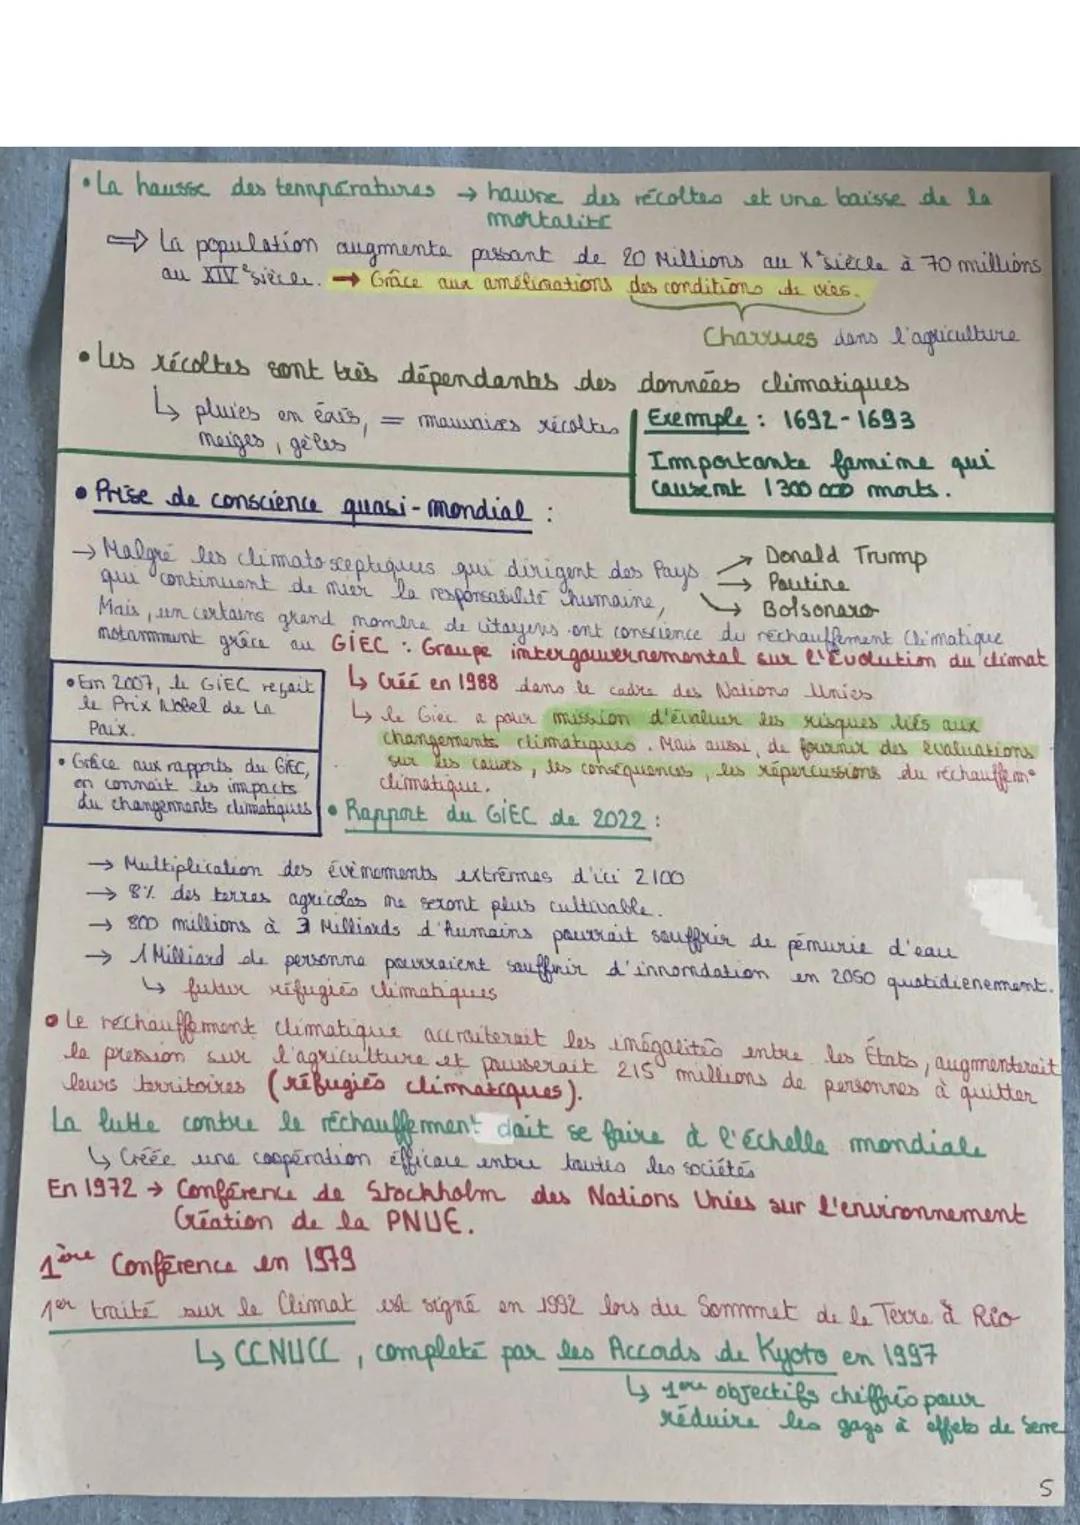 • La hausse des températures → hausse des récoltes et une baisse de la
mortalité
⇒ La population augmente passant de 20 Millions au Xe siècle à 70 millions
au XIVe siècle. → Grâce aux améliorations des conditions de vies.
Charrues dans l'agriculture
• Les récoltes sont très dépendantes des données climatiques
↳ pluies en étés, = mauvaises récoltes
neiges, gèles
Exemple : 1692-1693
Importante famine qui
causent 1 300 000 morts.
• Prise de conscience quasi-mondial :
→ Malgré les climatosceptiques qui dirigent des Pays
qui continuent de nier la responsabilité humaine,
→ Donald Trump
→ Poutine
→ Bolsonaro
Mais, un certains grand nombre de citoyens ont conscience du réchauffement Climatique
notamment grâce au GIEC : Groupe intergouvernemental sur l'Évolution du climat
↳ Créé en 1988 dans le cadre des Nations Unies
↳ le Giec a pour mission d'évaluer les risques liés aux
changements climatiques. Mais aussi, de fournir des évaluations
sur les causes, les conséquences, les répercussions du réchauffemt
climatique.
• En 2007, le GIEC reçoit
le Prix Nobel de La
Paix.
• Grâce aux rapports du GIEC,
on connait les impacts
du changements climatiques
• Rapport du GIEC de 2022 :
→ Multiplication des évènements extrêmes d'ici 2100
→ 8% des terres agricoles ne seront plus cultivable.
→ 800 millions à 3 Milliards d'humains pourrait souffrir de pénurie d'eau
→ 1 Milliard de personne pourraient souffrir d'innondation en 2050 quotidienement.
↳ futur réfugiés climatiques
• Le réchauffement climatique accroiterait les inégalités entre les États, augmenterait
la pression sur l'agriculture et pousserait 215 millions de personnes à quitter
leurs territoires (réfugiés climatiques).
La lutte contre le réchauffement doit se faire à l'échelle mondiale
↳ Créée une coopération efficace entre toutes les sociétés
En 1972 → Conférence de Stockholm des Nations Unies sur l'environnement
Création de la PNUE.
1ère Conférence en 1979
1er traité sur le Climat est signé en 1992 lors du Sommet de la Terre à Rio
↳ CCNUCC, completé par les Accords de Kyoto en 1997
↳ 1ère objectifs chiffrés pour
réduire les gazs à effets de Serre
5